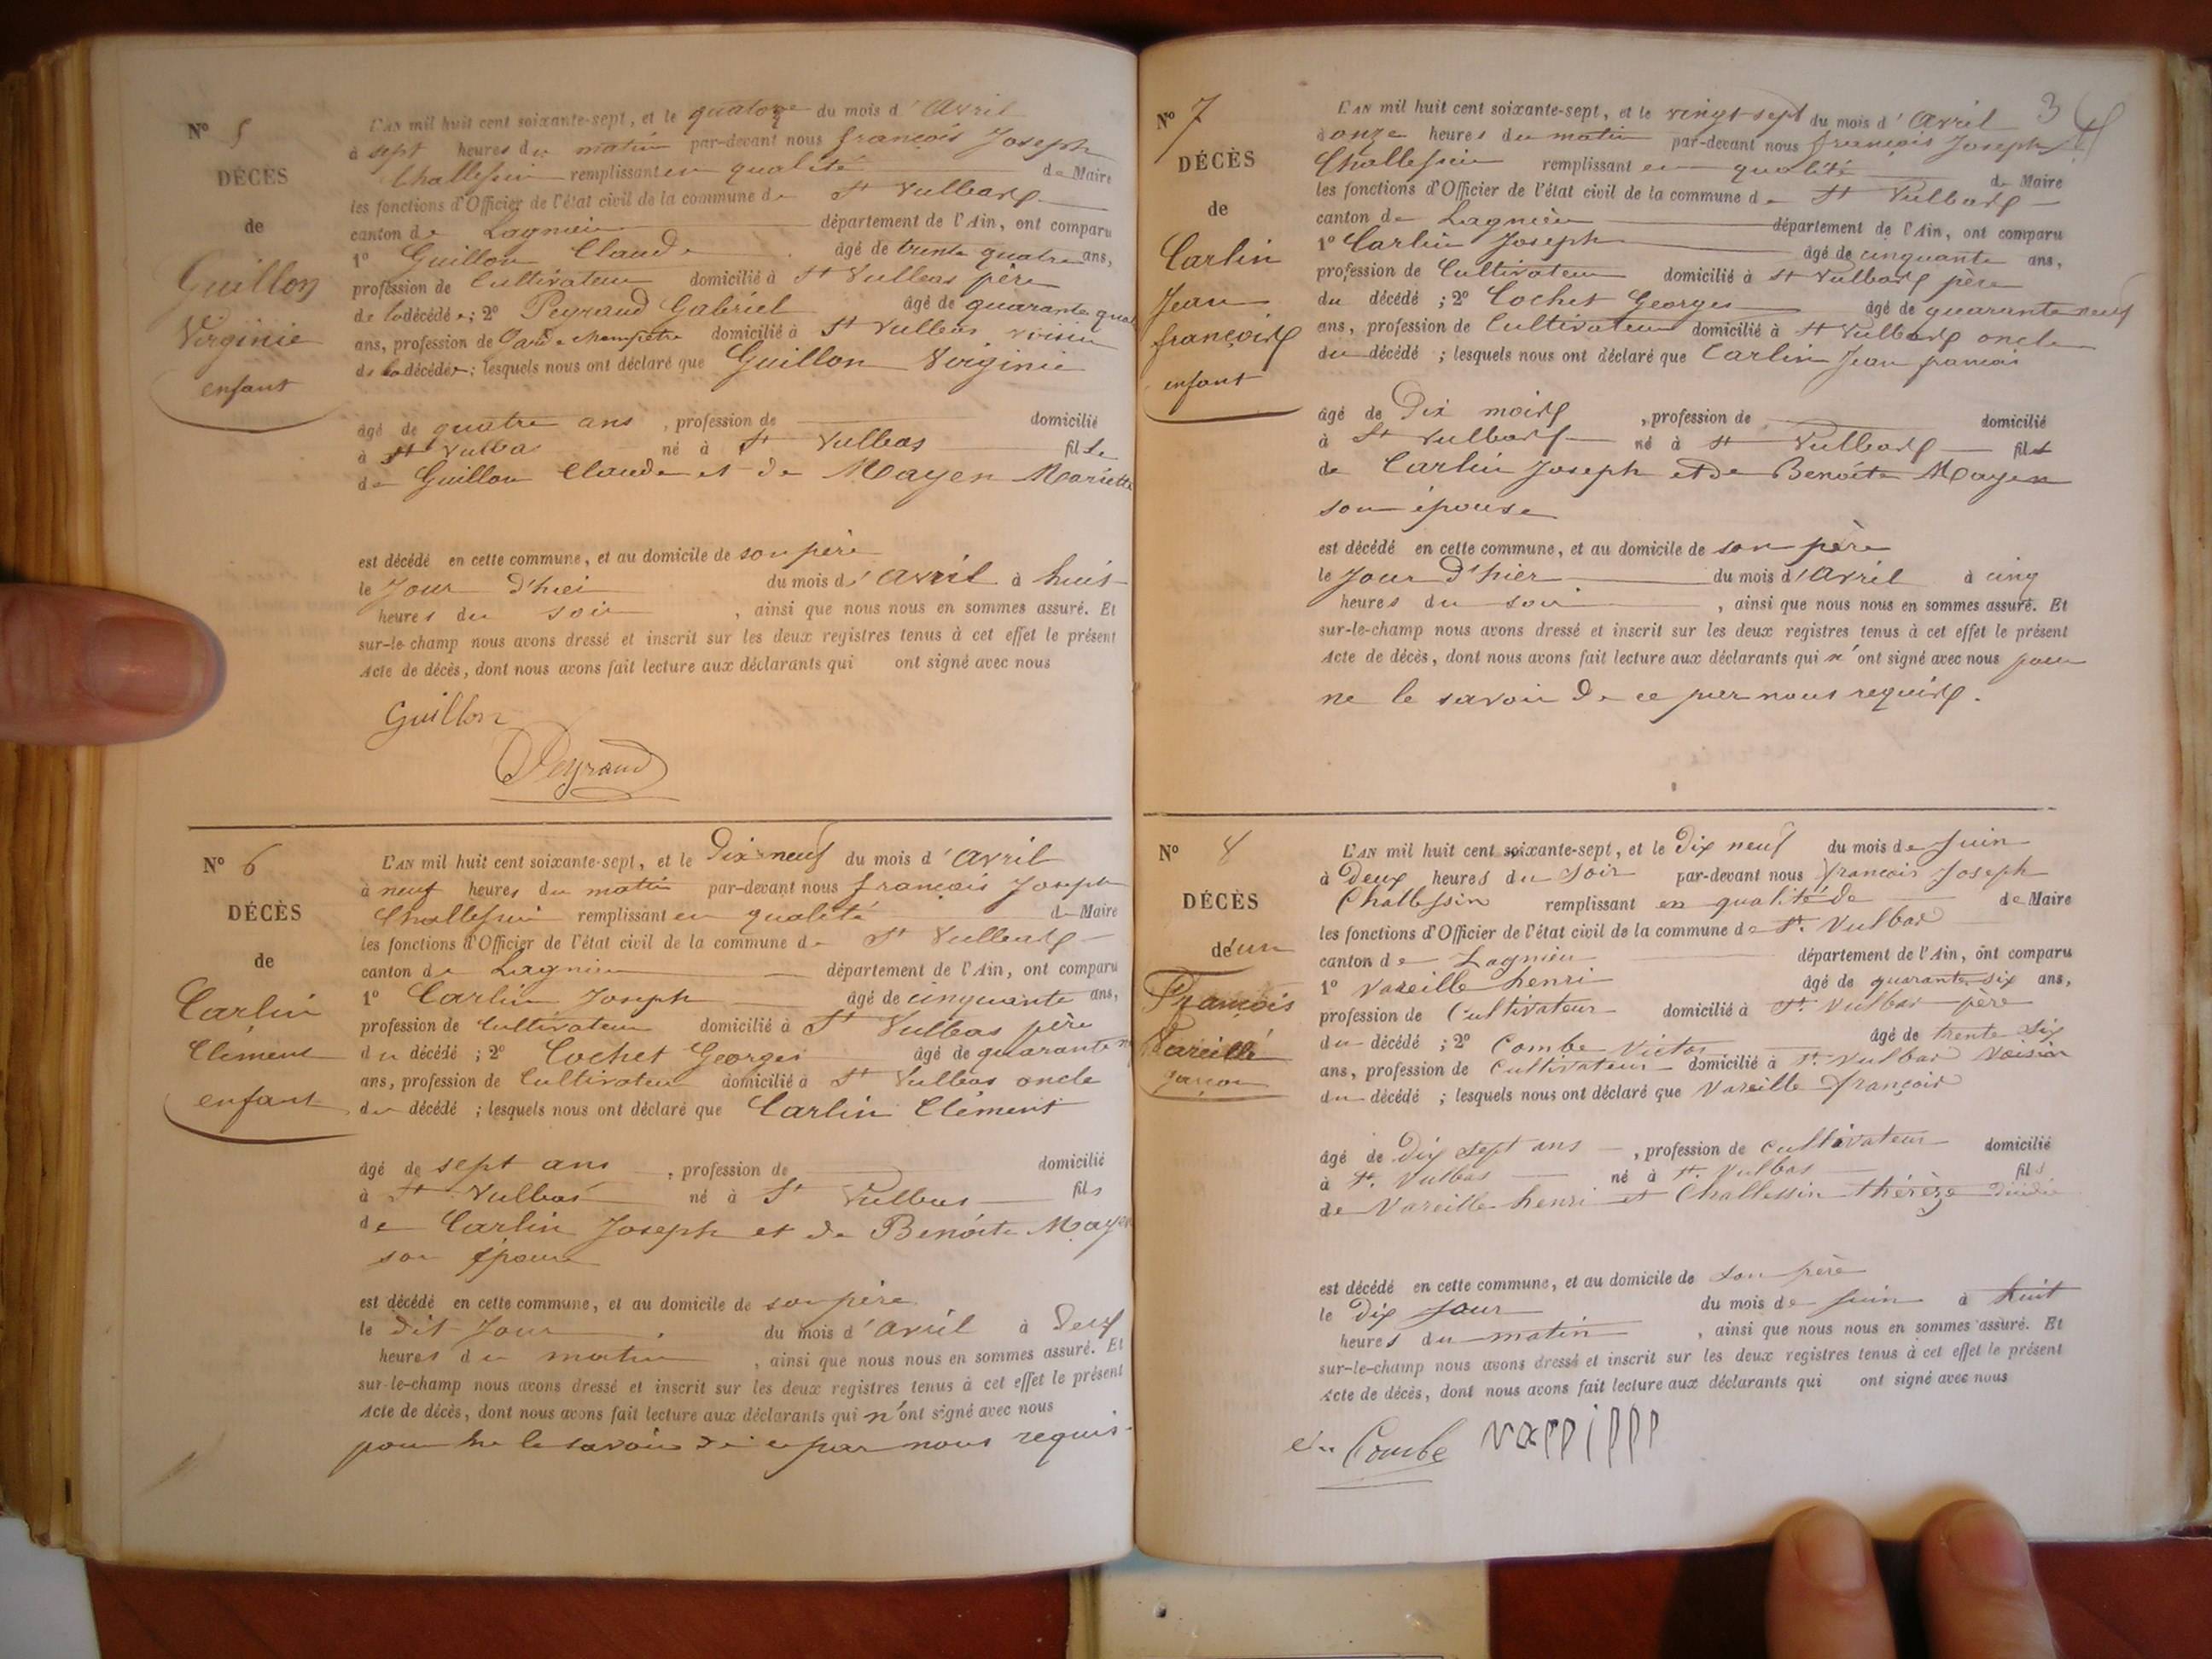 N° 5
DÉCÈS
de
Guillon
Virginie
enfant
L'AN mil huit cent soixante-sept, et le quatorze du mois d'Avril
à sept heures du matin par-devant nous françois Joseph
Challessin remplissant en qualité de Maire
les fonctions d'Officier de l'état civil de la commune de St Vulbas
canton de Lagnieu département de l'Ain, ont comparu
1° Guillon Claude âgé de trente quatre ans,
profession de Cultivateur domicilié à St Vulbas père
de la décédée; 2° Peyraud Gabriel âgé de quarante
ans, profession de Garde champêtre domicilié à St Vulbas voisin
de la décédée; lesquels nous ont déclaré que Guillon Virginie
âgé de quatre ans, profession de domicilié
à St Vulba né à St Vulbas fille
de Guillon Claude et de Mayen Mariette
est décédé en cette commune, et au domicile de son père
le Jour d'hier du mois d'avril à huit
heures du soir, ainsi que nous nous en sommes assuré. Et
sur-le-champ nous avons dressé et inscrit sur les deux registres tenus à cet effet le présent
Acte de décès, dont nous avons fait lecture aux déclarants qui ont signé avec nous
Guillon
Peyraud
N° 6
DÉCÈS
de
Carlin
Clément
enfant
L'AN mil huit cent soixante-sept, et le Dix neuf du mois d'Avril
à neuf heures du matin par-devant nous françois Joseph
Challessin remplissant en qualité de Maire
les fonctions d'Officier de l'état civil de la commune de St Vulbas
canton de Lagnieu département de l'Ain, ont comparu
1° Carlin Joseph âgé de cinquante ans,
profession de Cultivateur domicilié à St Vulbas père
du décédé; 2° Cochet Georges âgé de quarante
ans, profession de Cultivateur domicilié à St Vulbas oncle
du décédé; lesquels nous ont déclaré que Carlin Clément
âgé de sept ans, profession de domicilié
à St Vulbas né à St Vulbas fils
de Carlin Joseph et de Benoite Mayen
son épouse
est décédé en cette commune, et au domicile de son père
le dit Jour du mois d'avril à Deux
heures du matin, ainsi que nous nous en sommes assuré. Et
sur-le-champ nous avons dressé et inscrit sur les deux registres tenus à cet effet le présent
Acte de décès, dont nous avons fait lecture aux déclarants qui n'ont signé avec nous
pour ne le savoir de ce par nous requis.
3
N° 7
DÉCÈS
de
Carlin
Jean
françois
enfant
L'AN mil huit cent soixante-sept, et le vingt sept du mois d'Avril
à onze heures du matin par-devant nous françois Joseph
Challessin remplissant en qualité de Maire
les fonctions d'Officier de l'état civil de la commune de St Vulbas
canton de Lagnieu département de l'Ain, ont comparu
1° Carlin Joseph âgé de cinquante ans,
profession de Cultivateur domicilié à St Vulbas père
du décédé; 2° Cochet Georges âgé de quarante neuf
ans, profession de Cultivateur domicilié à St Vulbas oncle
du décédé; lesquels nous ont déclaré que Carlin Jean francois
âgé de Dix mois, profession de domicilié
à St Vulbas né à St Vulbas fils
de Carlin Joseph et de Benoite Mayen
son épouse
est décédé en cette commune, et au domicile de son père
le Jour d'hier du mois d'Avril à cinq
heures du soir, ainsi que nous nous en sommes assuré. Et
sur-le-champ nous avons dressé et inscrit sur les deux registres tenus à cet effet le présent
Acte de décès, dont nous avons fait lecture aux déclarants qui n'ont signé avec nous pour
ne le savoir de ce par nous requis.
N° 8
DÉCÈS
de un
François
Vareille
garçon
L'AN mil huit cent soixante-sept, et le Dix neuf du mois de Juin
à Deux heures du Soir par-devant nous françois Joseph
Challessin remplissant en qualité de de Maire
les fonctions d'Officier de l'état civil de la commune de St. Vulbas
canton de Lagnieu département de l'Ain, ont comparu
1° Vareille henri âgé de quarante six ans,
profession de Cultivateur domicilié à St. Vulbas père
du décédé; 2° Combe Victor âgé de trente six
ans, profession de Cultivateur domicilié à St. Vulbas Voisin
du décédé; lesquels nous ont déclaré que Vareille françois
âgé de Dix sept ans, profession de Cultivateur domicilié
à St. Vulbas né à St. Vulbas fils
de Vareille henri et Challessin thérèze
est décédé en cette commune, et au domicile de son père
le Dix Jour du mois de Juin à huit
heures du matin, ainsi que nous nous en sommes assuré. Et
sur-le-champ nous avons dressé et inscrit sur les deux registres tenus à cet effet le présent
Acte de décès, dont nous avons fait lecture aux déclarants qui ont signé avec nous
Combe